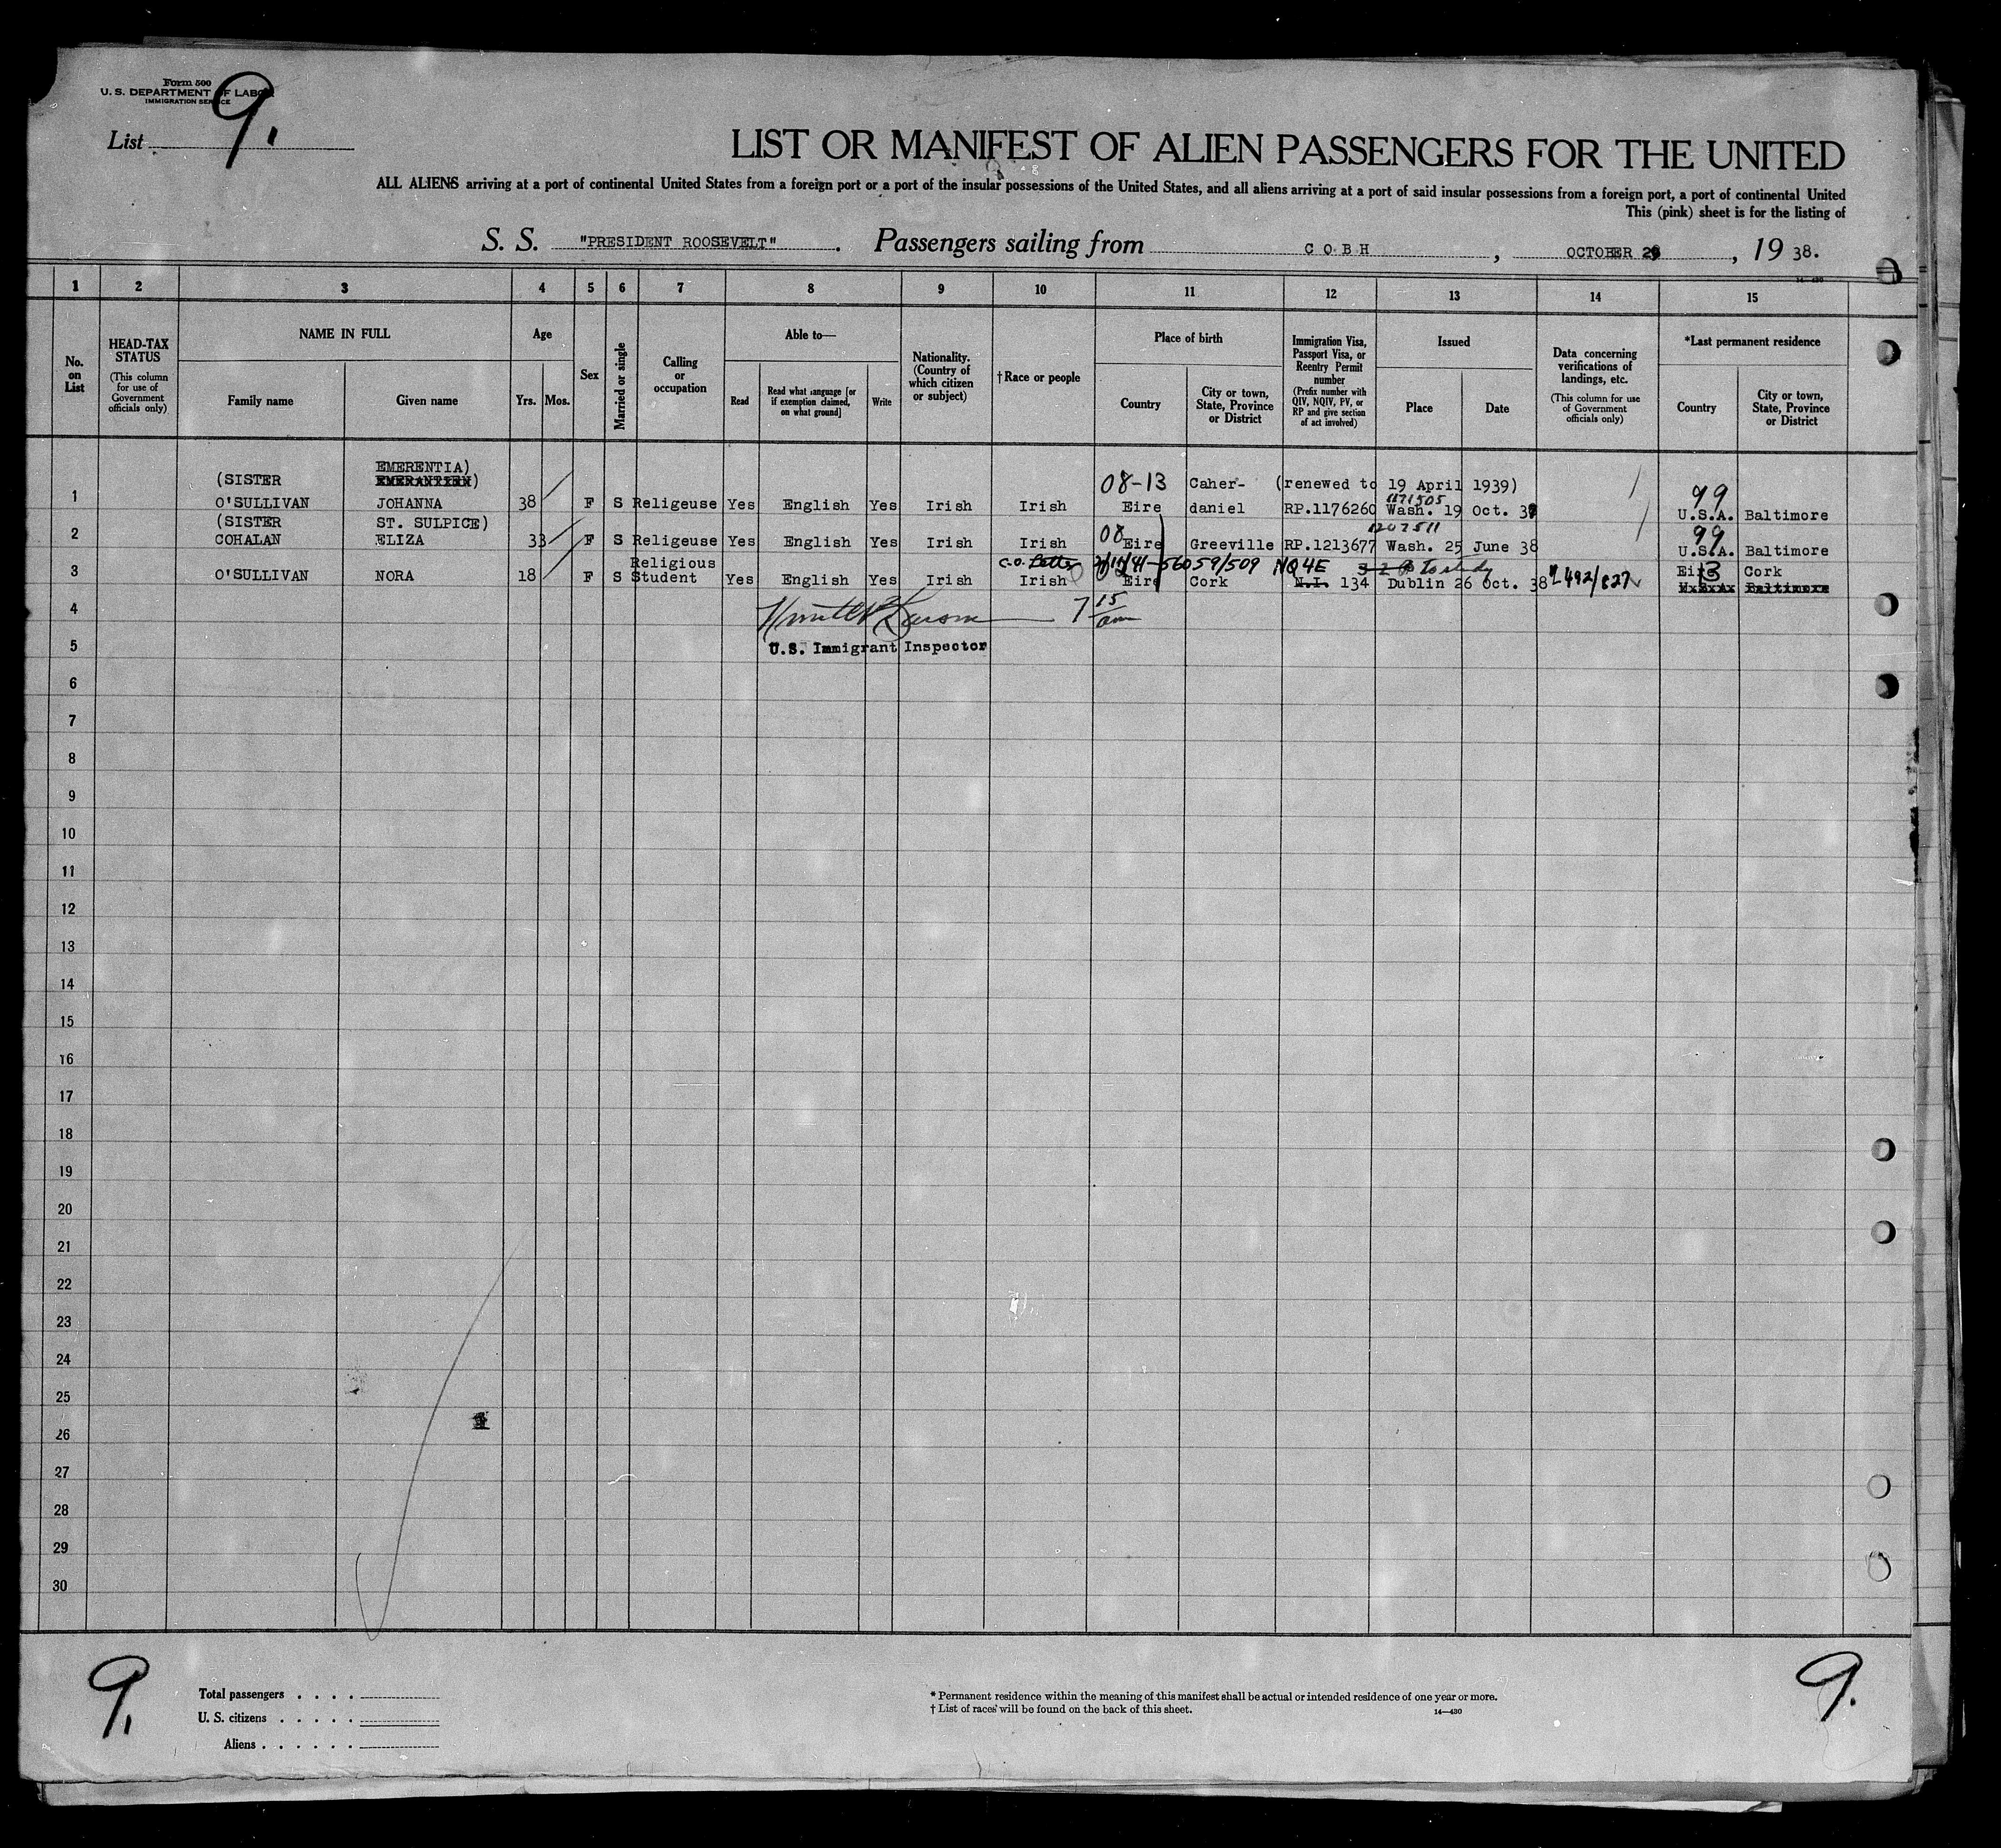 Form 500
U. S. DEPARTMENT OF LABOR
IMMIGRATION SERVICE
List 9.
LIST OR MANIFEST OF ALIEN PASSENGERS FOR THE UNITED
ALL ALIENS arriving at a port of continental United States from a foreign port or a port of the insular possessions of the United States, and all aliens arriving at a port of said insular possessions from a foreign port, a port of continental United
This (pink) sheet is for the listing of
S. S. "PRESIDENT ROOSEVELT". Passengers sailing from COBH, OCTOBER 29, 19 38.
14—430
1 2 3 4 5 6 7 8 9 10 11 12 13 14 15
No. on List
HEAD-TAX STATUS
(This column for use of Government officials only)
NAME IN FULL
Family name Given name
Age
Yrs. Mos.
Sex
Married or single
Calling or occupation
Able to—
Read
Read what language [or if exemption claimed, on what ground]
Write
Nationality. (Country of which citizen or subject)
†Race or people
Place of birth
Country
City or town, State, Province or District
Immigration Visa, Passport Visa, or Reentry Permit number
(Prefix number with QIV, NQIV, PV, or RP and give section of act involved)
Issued
Place Date
Data concerning verifications of landings, etc.
(This column for use of Government officials only)
*Last permanent residence
Country
City or town, State, Province or District
EMERENTIA)
(SISTER EMERANTIEN) 08-13 Caher- (renewed to 19 April 1939) 99
1171505
1 O'SULLIVAN JOHANNA 38 F S Religeuse Yes English Yes Irish Irish Eire daniel RP.1176260 Wash. 19 Oct. 37 U.S.A. Baltimore
(SISTER ST. SULPICE) 08 1207511 99
2 COHALAN ELIZA 33 F S Religeuse Yes English Yes Irish Irish Eire Greeville RP.1213677 Wash. 25 June 38 U.S.A. Baltimore
Religious C.O. Letter 56059/509 NQ4E To study
3 O'SULLIVAN NORA 18 F S Student Yes English Yes Irish Irish Eire Cork N.I. 134 Dublin 26 Oct. 38 492/827 Eire 13 Cork
U.S.A. Baltimore
4 7 15 am
5 U.S. Immigrant Inspector
6
7
8
9
10
11
12
13
14
15
16
17
18
19
20
21
22
23
24
25
26
27
28
29
30
9. 9.
Total passengers
U. S. citizens
Aliens
* Permanent residence within the meaning of this manifest shall be actual or intended residence of one year or more.
† List of races will be found on the back of this sheet.
14—430